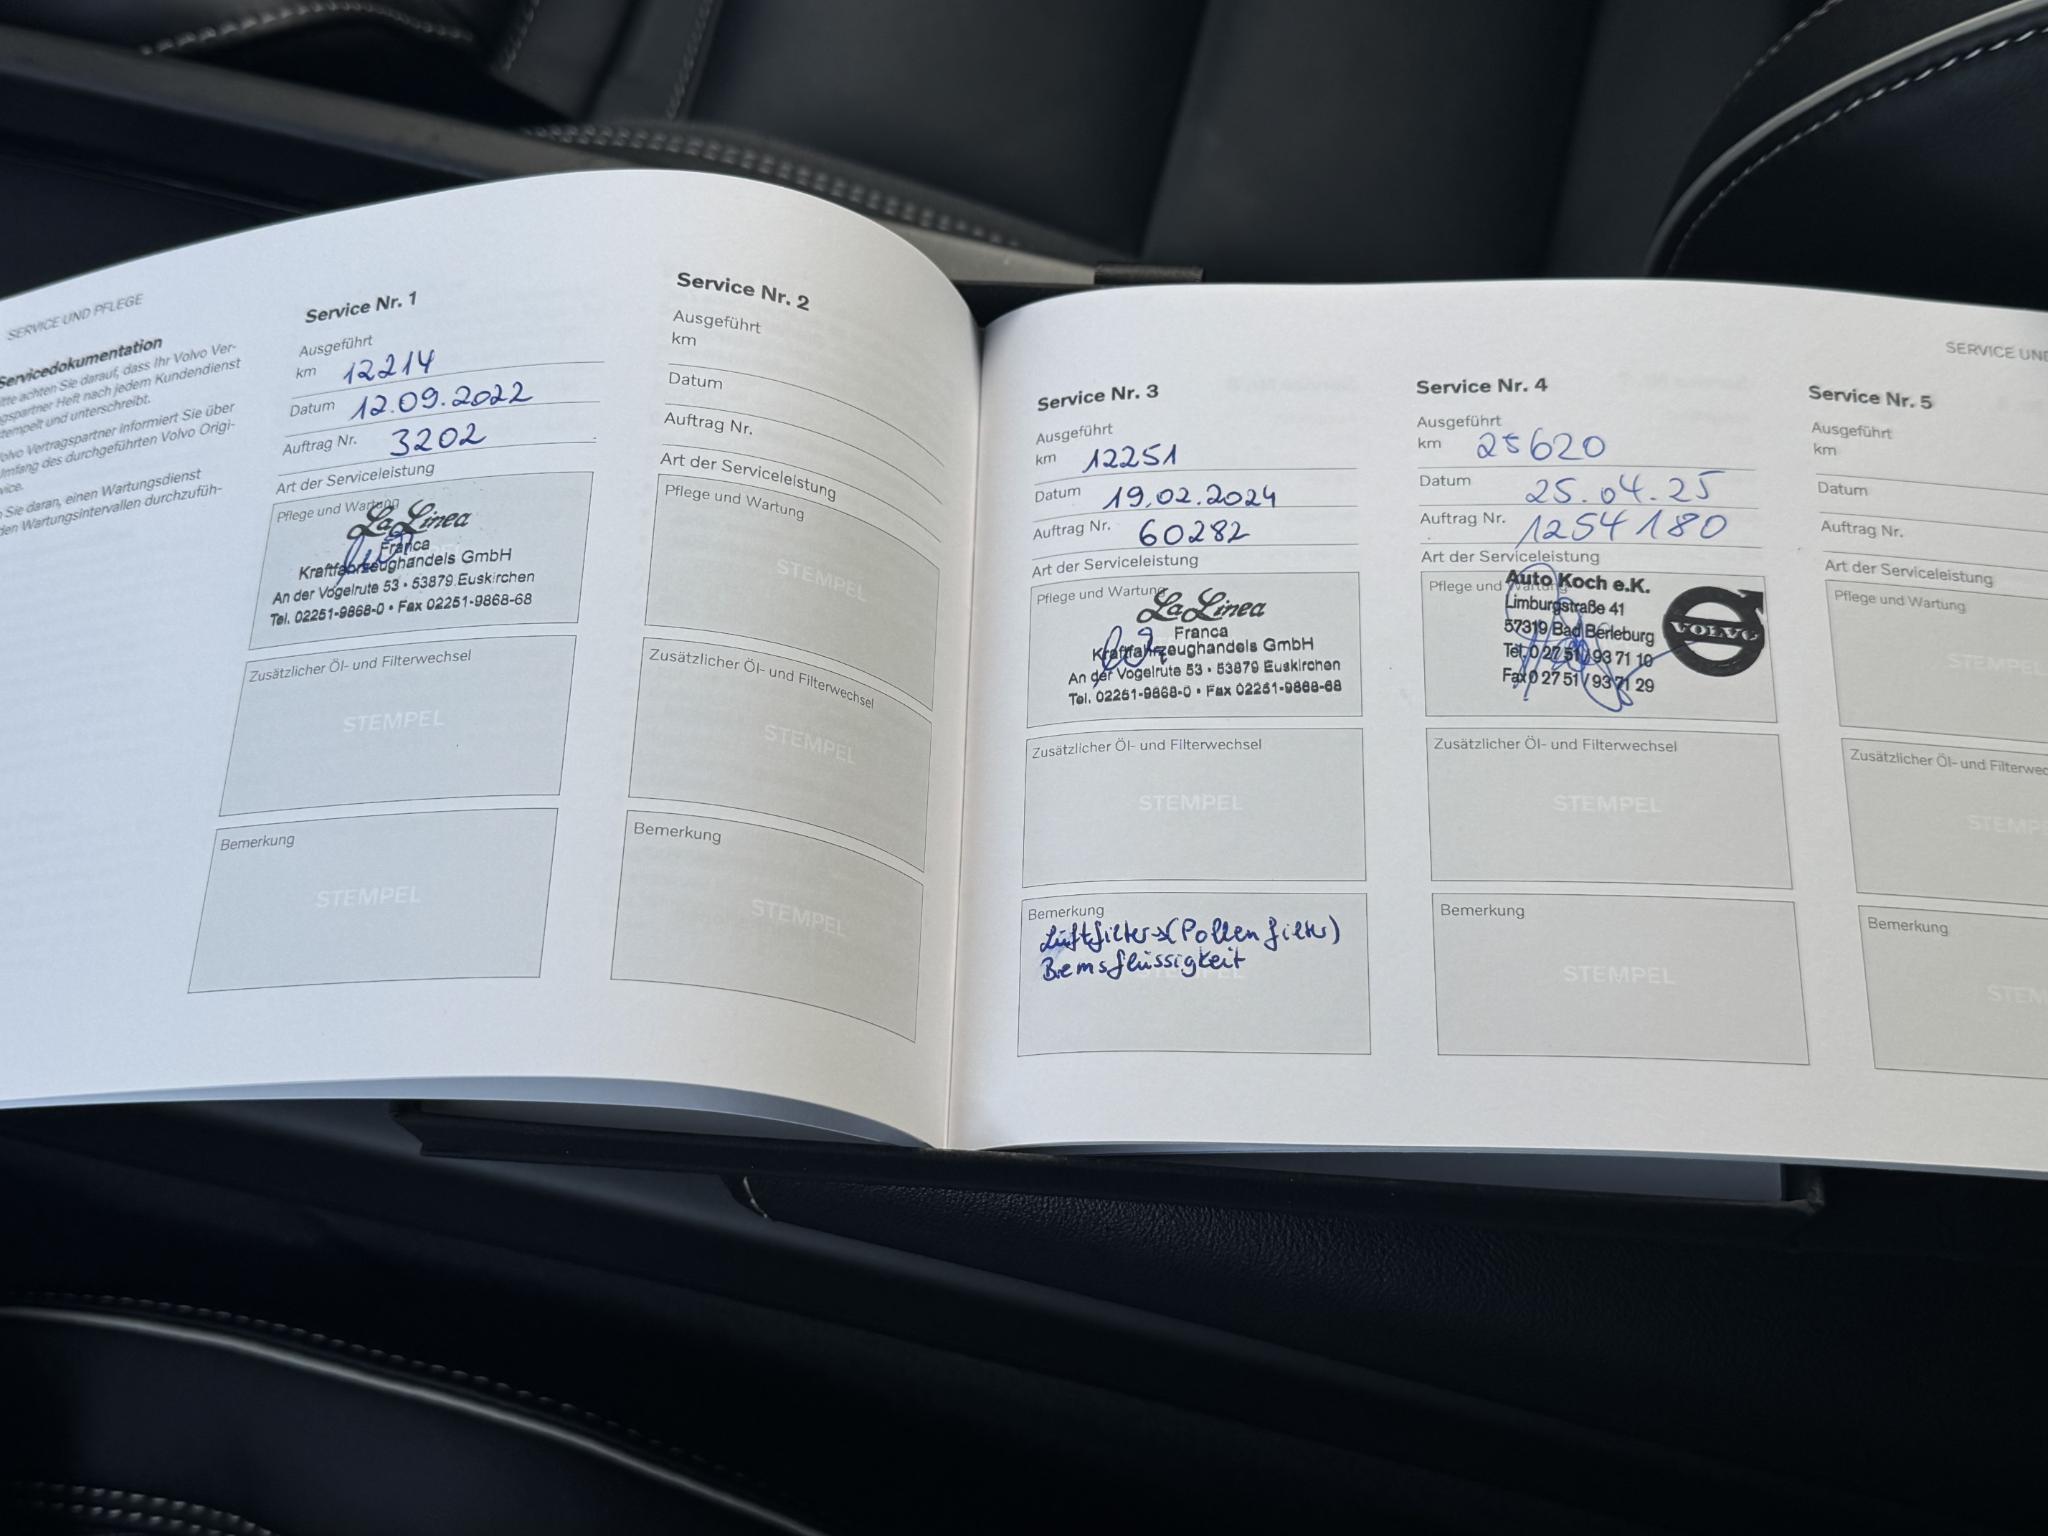 SERVICE UND PFLEGE
Servicedokumentation
itte achten Sie darauf, dass Ihr Volvo Ver-
gspartner Heft nach jedem Kundendienst
tempelt und unterschreibt.
olvo Vertragspartner informiert Sie über
mfang des durchgeführten Volvo Origi-
vice.
Sie daran, einen Wartungsdienst
den Wartungsintervallen durchzufüh-
Service Nr. 1
Ausgeführt
km 12214
Datum 12.09.2022
Auftrag Nr. 3202
Art der Serviceleistung
Pflege und Wartung
La Linea
Franca
Kraftfahrzeughandels GmbH
An der Vogelrute 53 • 53879 Euskirchen
Tel. 02251-9868-0 • Fax 02251-9868-68
Zusätzlicher Öl- und Filterwechsel
STEMPEL
Bemerkung
STEMPEL
Service Nr. 2
Ausgeführt
km
Datum
Auftrag Nr.
Art der Serviceleistung
Pflege und Wartung
STEMPEL
Zusätzlicher Öl- und Filterwechsel
STEMPEL
Bemerkung
STEMPEL
Service Nr. 3
Ausgeführt
km 12251
Datum 19.02.2024
Auftrag Nr. 60282
Art der Serviceleistung
Pflege und Wartung
La Linea
Franca
Kraftfahrzeughandels GmbH
An der Vogelrute 53 • 53879 Euskirchen
Tel. 02251-9868-0 • Fax 02251-9868-68
Zusätzlicher Öl- und Filterwechsel
STEMPEL
Bemerkung
Luftfilter (Pollenfilter)
Bremsflüssigkeit
Service Nr. 4
Ausgeführt
km 25620
Datum 25.04.25
Auftrag Nr. 1254180
Art der Serviceleistung
Pflege und Wartung
Auto Koch e.K.
Limburgstraße 41
57319 Bad Berleburg
Tel. 0 27 51 / 93 71 10
Fax 0 27 51 / 93 71 29
VOLVO
Zusätzlicher Öl- und Filterwechsel
STEMPEL
Bemerkung
STEMPEL
SERVICE UND
Service Nr. 5
Ausgeführt
km
Datum
Auftrag Nr.
Art der Serviceleistung
Pflege und Wartung
STEMPEL
Zusätzlicher Öl- und Filterwec
STEMPE
Bemerkung
STEM